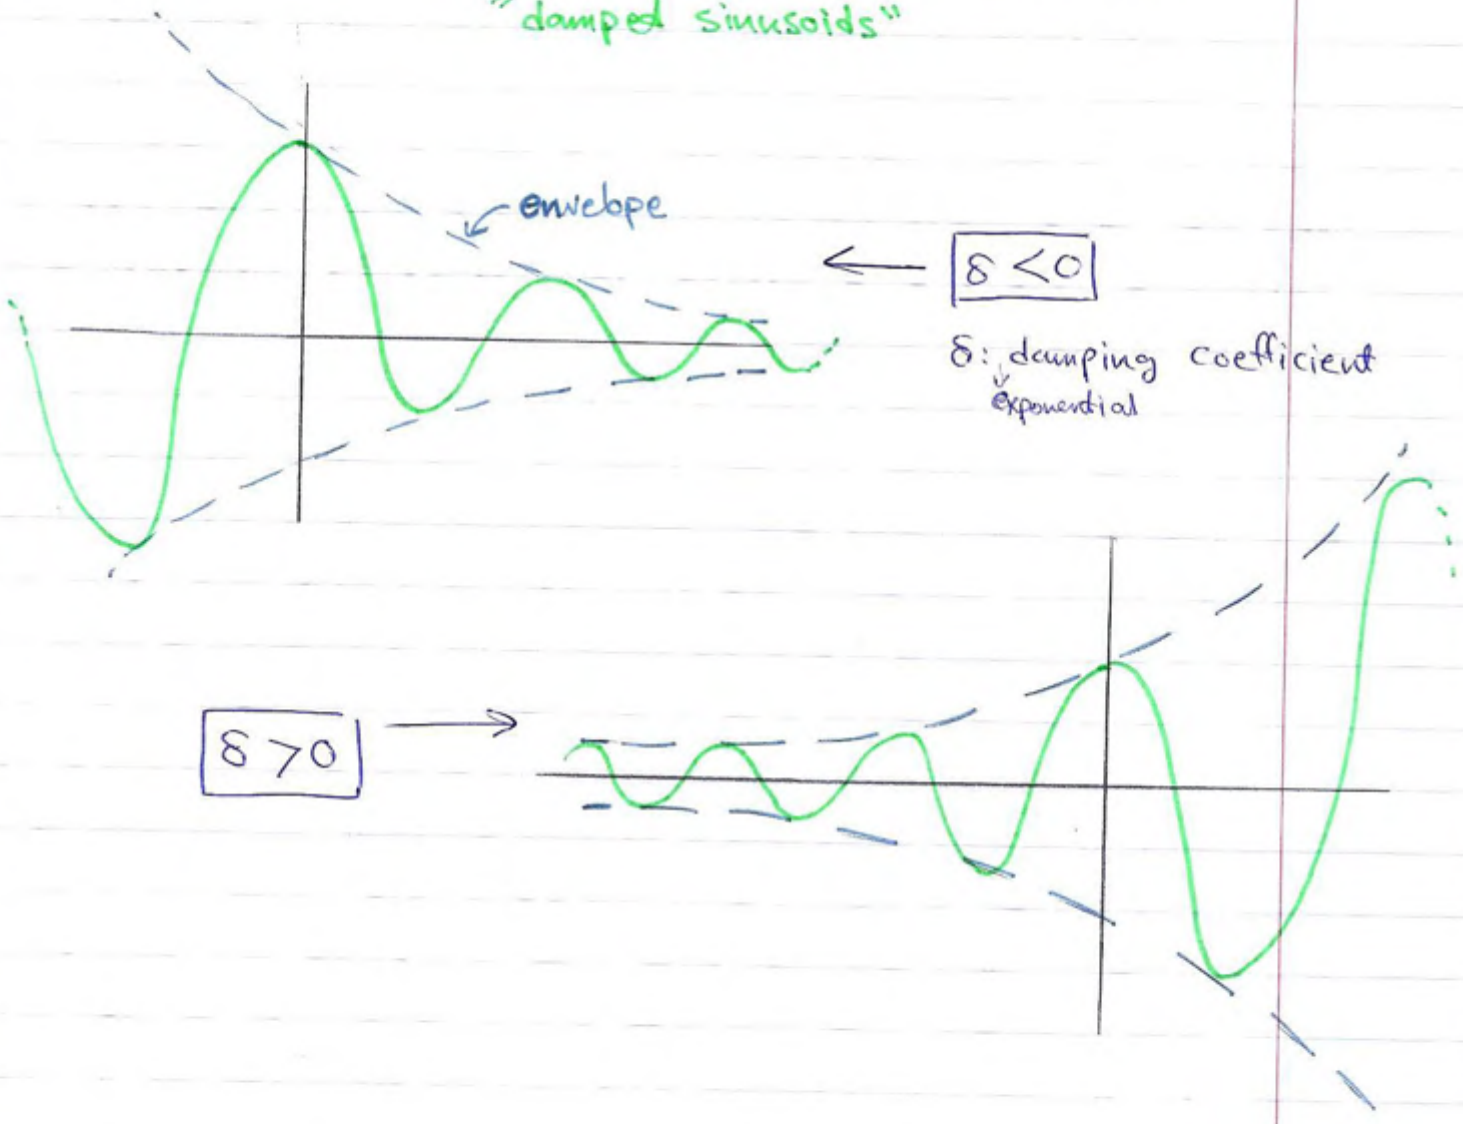 "damped sinusoids"
envelope
δ < 0
δ: damping coefficient
exponential
δ > 0